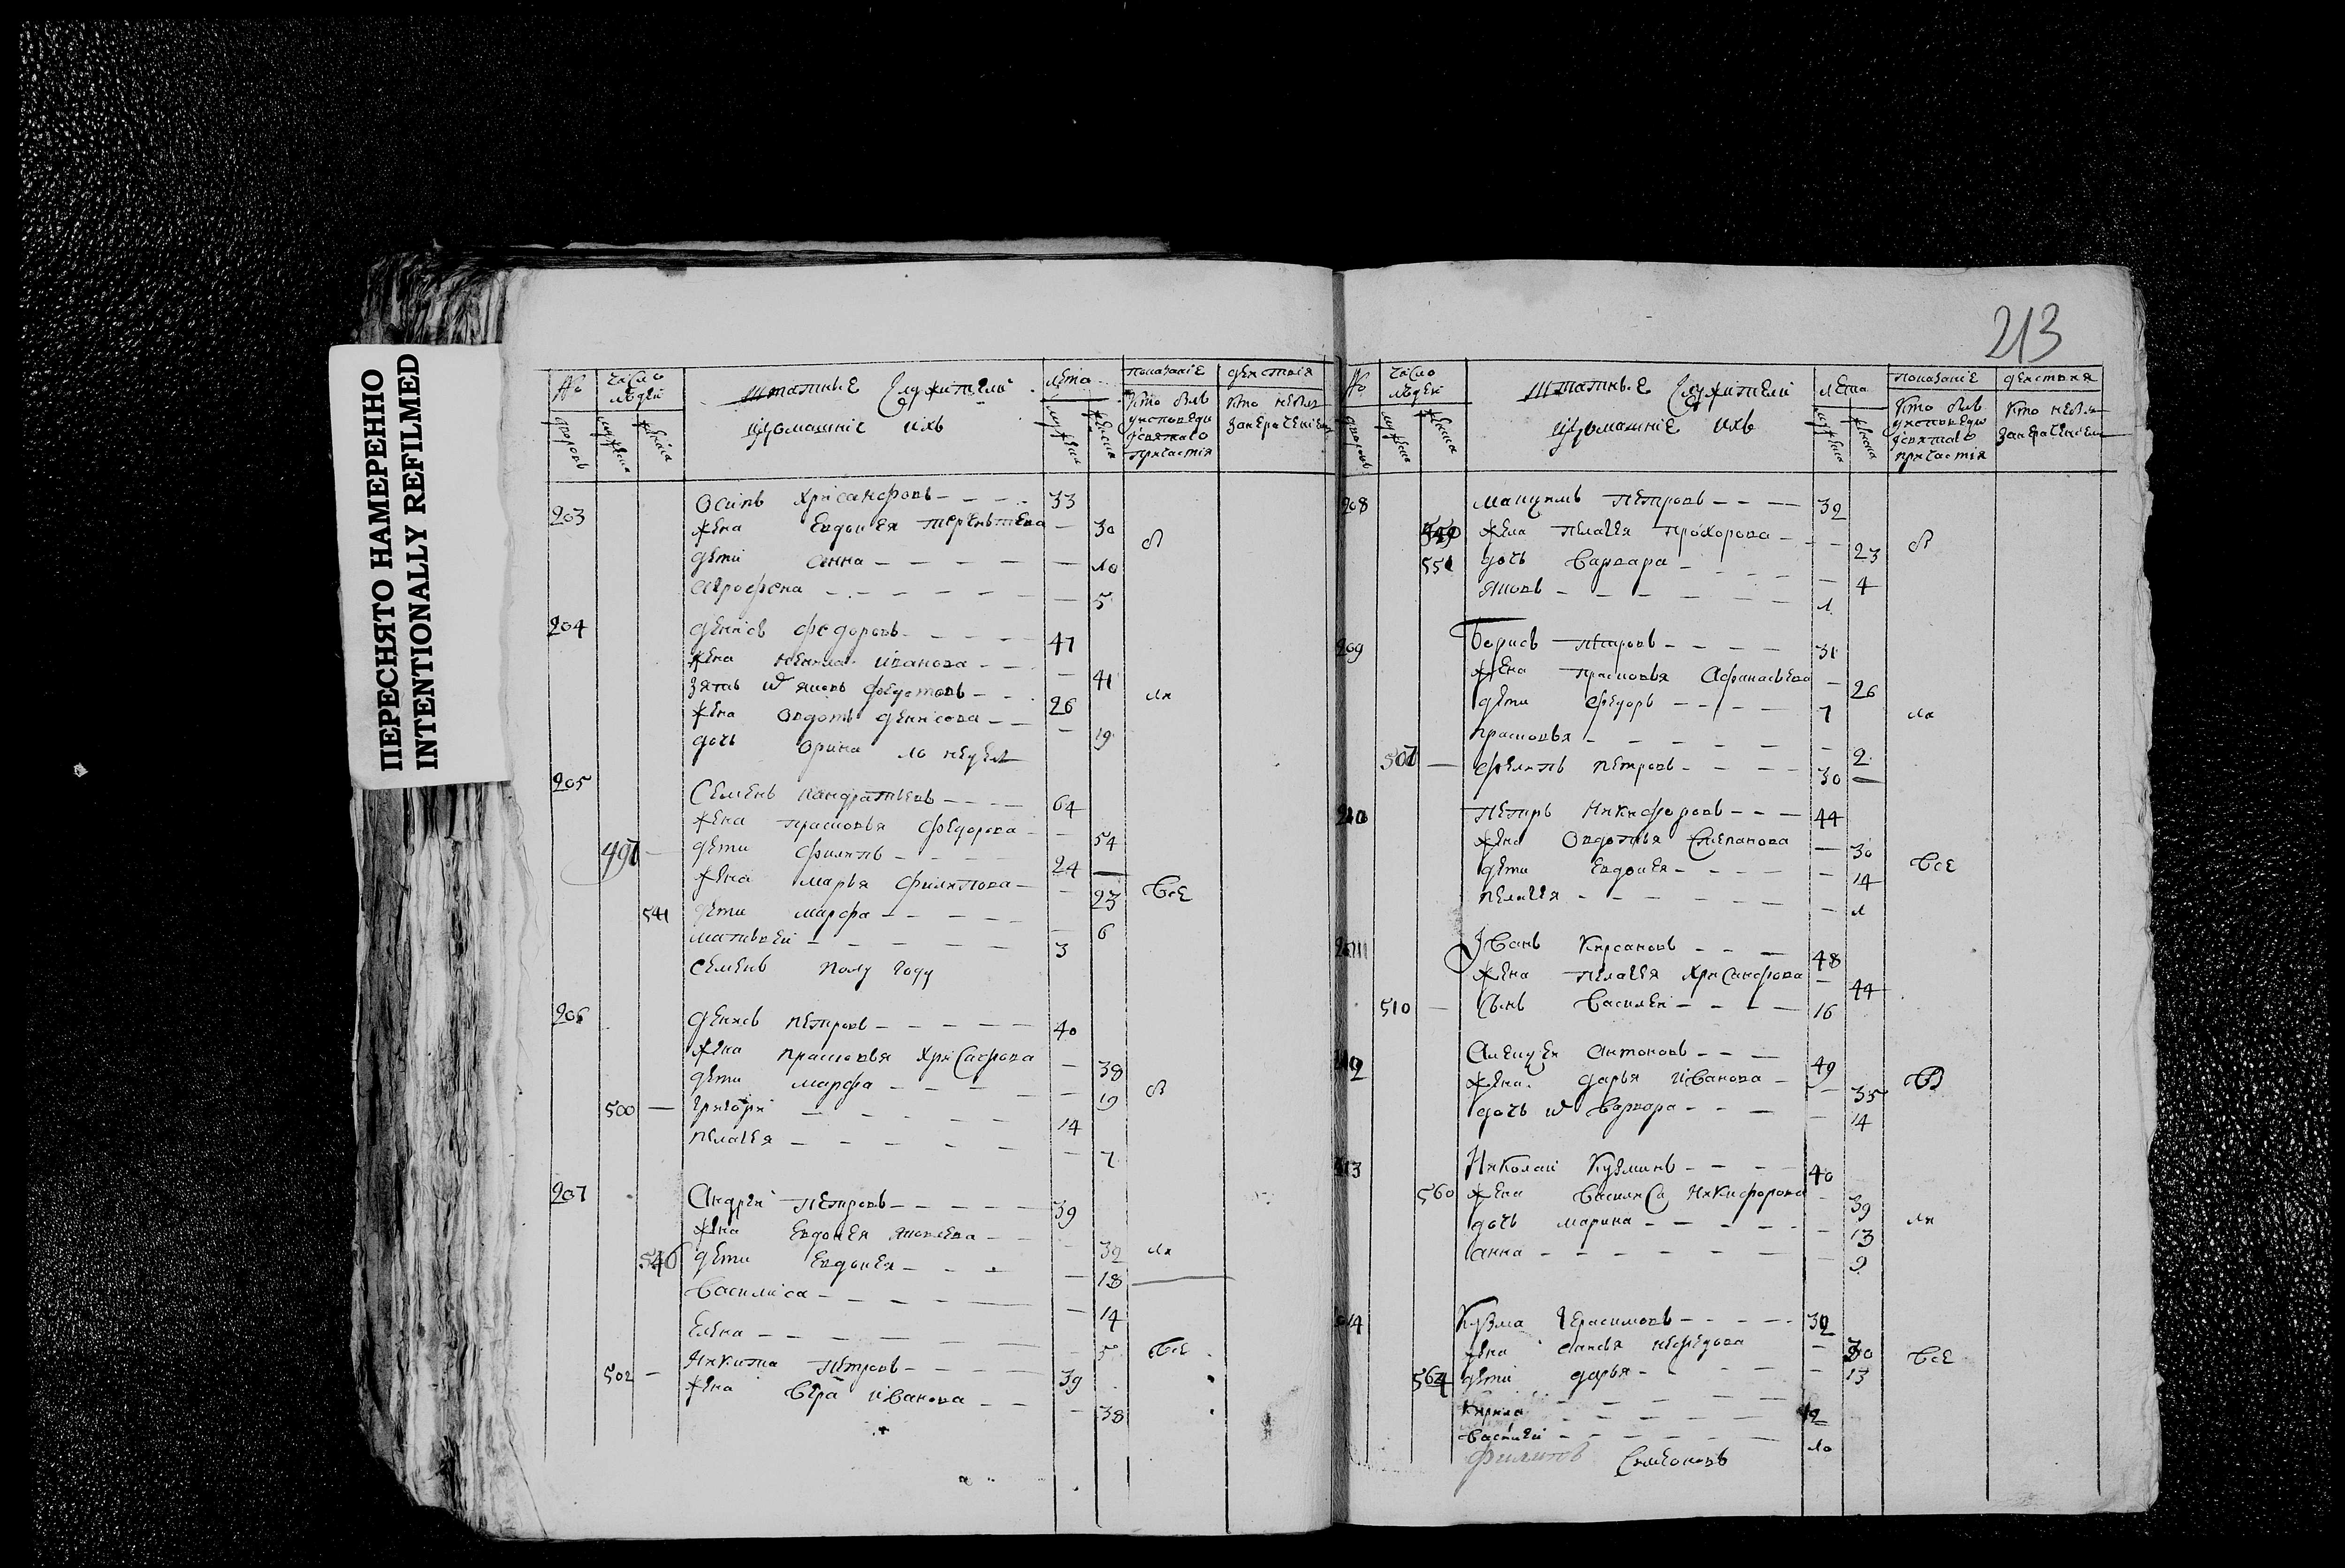 ПЕРЕСНЯТО НАМЕРЕННО
INTENTIONALLY REFILMED
213
№ число людей штатные служители лѣта показание действия
дворовъ мужеска женска и домашние ихъ мужеска женска кто былъ у исповеди и святаго причастия кто не былъ за нерачениемъ
203 Осипъ Хрисанфовъ 33
жена Евдокея Терентьева 30
дети Анна 10
Агрофена 5
204 Денисъ Федоровъ 47
жена Ненила Иванова 41
зять Яковъ Федотовъ 26
жена Овдотья Денисова 19
дочь Орина 10 недель
205 Семенъ Кандратьевъ 64
жена Прасковья Федорова 54
497 дети Филипъ 24
жена Марья Филипова 23 все
541 дети Марфа 6
Матвеей 3
Семенъ полу году
206 Денисъ Петровъ 40
жена Прасковья Хрисанфова 38
дети Марфа 19
500 Григорей 14
Пелагея 7
207 Андрей Петровъ 39
жена Евдокея Яковлева 32
546 дети Евдокея 18
Василиса 14
Елена 5 все
502 Никита Петровъ 39
жена Вера Иванова 38
№ число людей штатные служители лета показание действия
дворовъ мужеска женска и домашние ихъ мужеска женска кто былъ у исповеди и святаго причастия кто не былъ за нерачениемъ
208 Мануилъ Петровъ 32
жена Пелагея Прохорова 23
551 дочь Варвара 4
Яковъ 1
209 Борисъ Петровъ 31
жена Прасковья Афанасьева 26
дети Федоръ 7
Прасковья 2
507 Филипъ Петровъ 30
210 Петръ Никифоровъ 44
жена Овдотья Степанова 30
дети Евдокея 14 все
Пелагея 1
Иванъ Кирсановъ 48
жена Пелагея Хрисанфова 44
510 сынъ Василей 16
Алексей Антоновъ 49
жена Дарья Иванова 35
дочь Варвара 14
Николай Кузминъ 40
560 жена Василиса Никифорова 39
дочь Марина 13
Анна 9
Кузма Герасимовъ 32
жена Нефедова 30 все
564 дети Дарья 13
Кирила 12
Василей 10
Филиппъ Симеоновъ